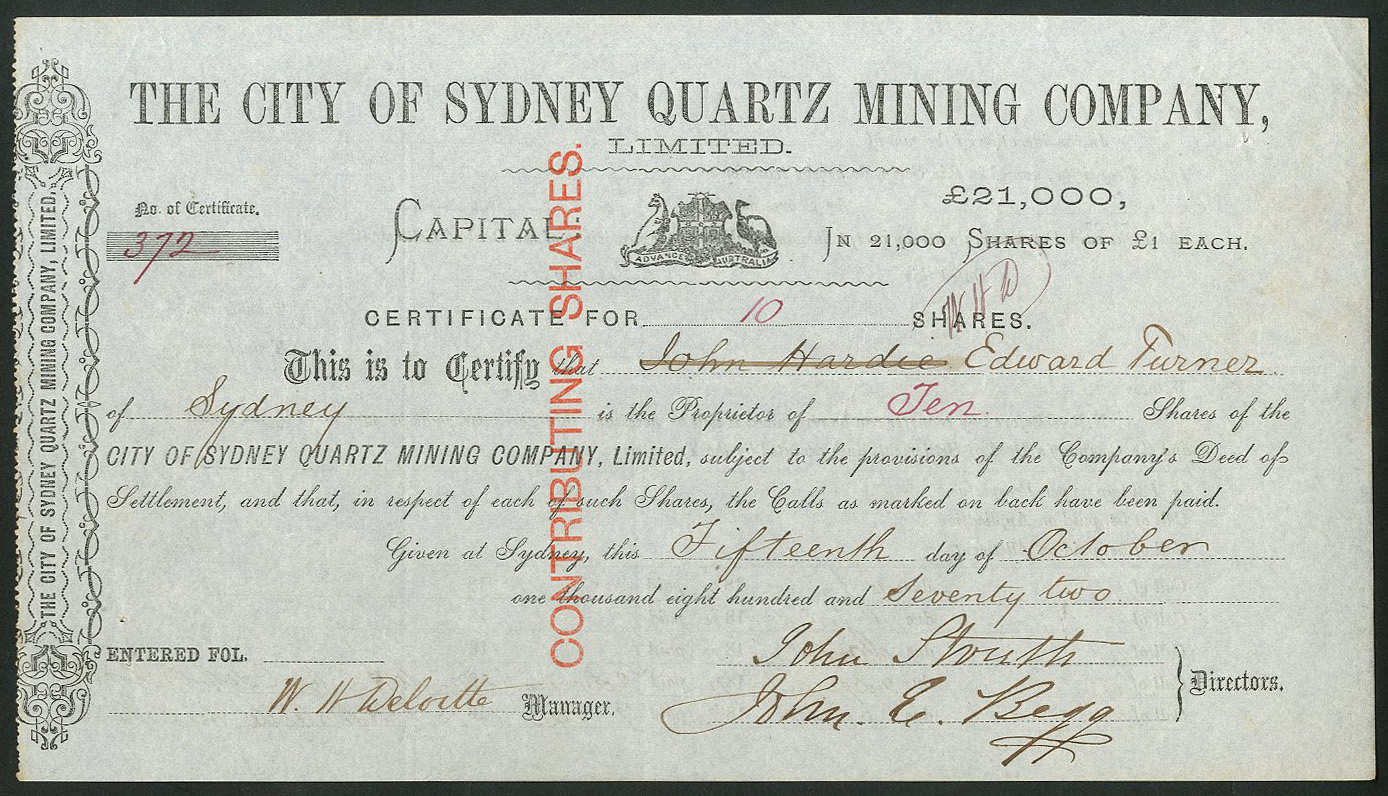 THE CITY OF SYDNEY QUARTZ MINING COMPANY,
LIMITED.
THE CITY OF SYDNEY QUARTZ MINING COMPANY, LIMITED, THE CITY OF SYDNEY QUARTZ MINING COMPANY, LIMITED.
No. of Certificate.
372
CAPITAL: £21,000,
ADVANCE AUSTRALIA
IN 21,000 SHARES OF £1 EACH.
CONTRIBUTING SHARES.
W H D
CERTIFICATE FOR 10 SHARES.
This is to Certify that John Hardie Edward Turner
of Sydney is the Proprietor of Ten Shares of the
CITY OF SYDNEY QUARTZ MINING COMPANY, Limited, subject to the provisions of the Company's Deed of
Settlement, and that, in respect of each of such Shares, the Calls as marked on back have been paid.
Given at Sydney, this Fifteenth day of October
one thousand eight hundred and Seventy two
ENTERED FOL.
John
W. H Deloitte Manager.
John. E. Begg
Directors.